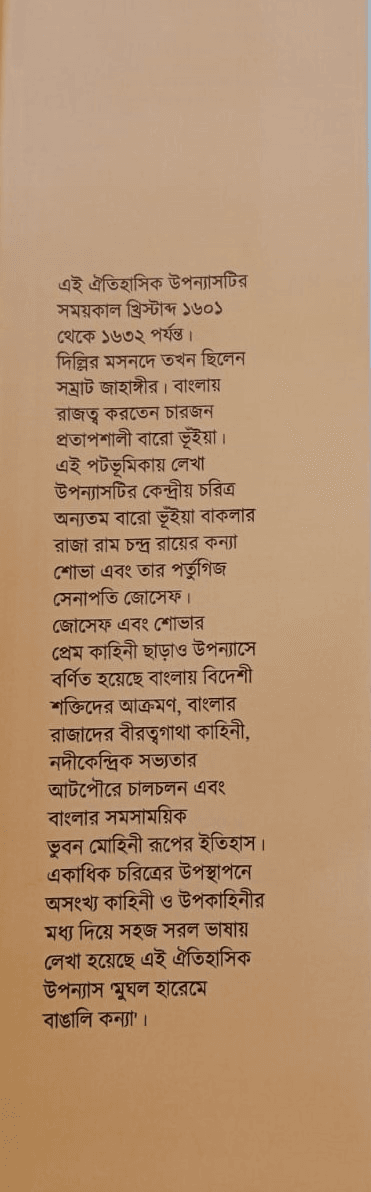 এই ঐতিহাসিক উপন্যাসটির
সময়কাল খ্রিস্টাব্দ ১৬০১
থেকে ১৬৩২ পর্যন্ত।
দিল্লির মসনদে তখন ছিলেন
সম্রাট জাহাঙ্গীর। বাংলায়
রাজত্ব করতেন চারজন
প্রতাপশালী বারো ভূঁইয়া।
এই পটভূমিকায় লেখা
উপন্যাসটির কেন্দ্রীয় চরিত্র
অন্যতম বারো ভূঁইয়া বাকলার
রাজা রাম চন্দ্র রায়ের কন্যা
শোভা এবং তার পর্তুগিজ
সেনাপতি জোসেফ।
জোসেফ এবং শোভার
প্রেম কাহিনী ছাড়াও উপন্যাসে
বর্ণিত হয়েছে বাংলায় বিদেশী
শক্তিদের আক্রমণ, বাংলার
রাজাদের বীরত্বগাথা কাহিনী,
নদীকেন্দ্রিক সভ্যতার
আটপৌরে চালচলন এবং
বাংলার সমসাময়িক
ভুবন মোহিনী রূপের ইতিহাস।
একাধিক চরিত্রের উপস্থাপনে
অসংখ্য কাহিনী ও উপকাহিনীর
মধ্য দিয়ে সহজ সরল ভাষায়
লেখা হয়েছে এই ঐতিহাসিক
উপন্যাস 'মুঘল হারেমে
বাঙালি কন্যা'।